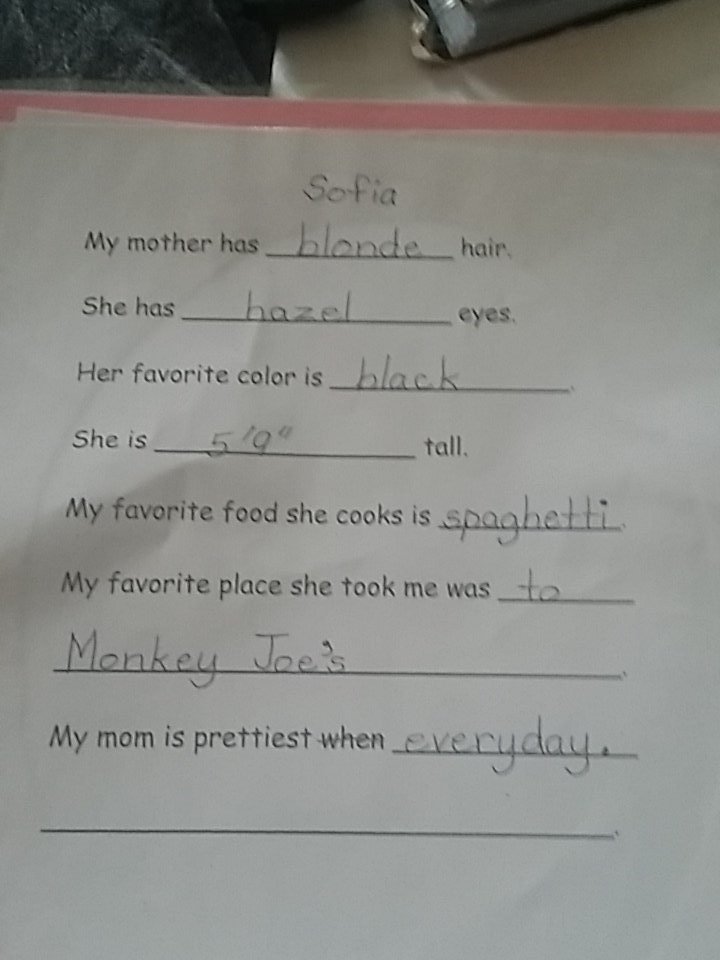 Sofia
My mother has blonde hair.
She has hazel eyes.
Her favorite color is black.
She is 5'9" tall.
My favorite food she cooks is spaghetti.
My favorite place she took me was to
Monkey Joe's.
My mom is prettiest when everyday.
.